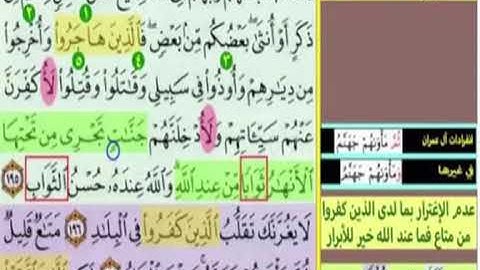 ذَكَرٍ أَوْ أُنثَىٰ بَعْضُكُم مِّنۢ بَعْضٍ فَٱلَّذِينَ هَاجَرُوا۟ وَأُخْرِجُوا۟
مِن دِيَٰرِهِمْ وَأُوذُوا۟ فِى سَبِيلِى وَقَٰتَلُوا۟ وَقُتِلُوا۟ لَأُكَفِّرَنَّ
عَنْهُمْ سَيِّـَٔاتِهِمْ وَلَأُدْخِلَنَّهُمْ جَنَّٰتٍ تَجْرِى مِن تَحْتِهَا
ٱلْأَنْهَٰرُ ثَوَابًا مِّنْ عِندِ ٱللَّهِ وَٱللَّهُ عِندَهُۥ حُسْنُ ٱلثَّوَابِ ١٩٥
لَا يَغُرَّنَّكَ تَقَلُّبُ ٱلَّذِينَ كَفَرُوا۟ فِى ٱلْبِلَٰدِ ١٩٦ مَتَٰعٌ قَلِيلٌ
انفرادات آل عمران
ثُمَّ مَأْوَىٰهُمْ جَهَنَّمُ
في غيرها
وَمَأْوَىٰهُمْ جَهَنَّمُ
عدم الإغترار بما لدى الذين كفروا
من متاع فما عند الله خير للأبرار